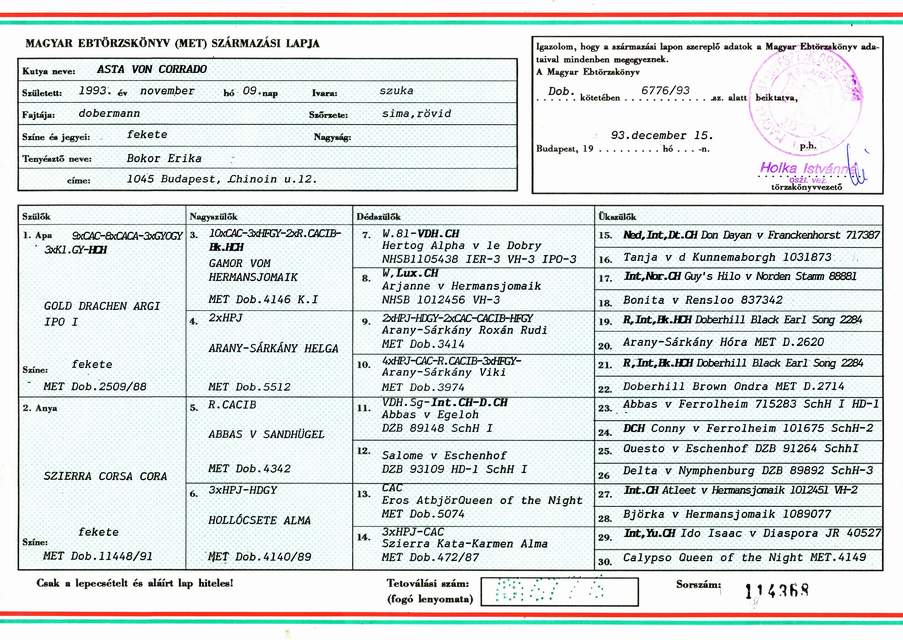 MAGYAR EBTÖRZSKÖNYV (MET) SZÁRMAZÁSI LAPJA
Kutya neve: ASTA VON CORRADO
Született: 1993. év november hó 09.nap Ivara: szuka
Fajtája: dobermann Szőrzete: sima,rövid
Színe és jegyei: fekete Nagyság:
Tenyésztő neve: Bokor Erika
címe: 1045 Budapest, Chinoin u.12.
Igazolom, hogy a származási lapon szereplő adatok a Magyar Ebtörzskönyv ada-
taival mindenben megegyeznek.
A Magyar Ebtörzskönyv
Dob. kötetében 6776/93 sz. alatt beiktatva,
93.december 15.
Budapest, 19 ......... hó ...-n.
p.h.
Holka Istvánné
oszt. vez.
törzskönyvvezető
Szülők
1. Apa 9xCAC-8xCACA-3xGYOGY
3xKl.GY-HCH
GOLD DRACHEN ARGI
IPO I
Színe: fekete
MET Dob.2509/88
2. Anya
SZIERRA CORSA CORA
Színe: fekete
MET Dob.11448/91
Nagyszülők
3. 10xCAC-3xHFGY-2xR.CACIB-
Bk.HCH
GAMOR VOM
HERMANSJOMAIK
MET Dob.4146 K.I
4. 2xHPJ
ARANY-SÁRKÁNY HELGA
MET Dob.5512
5. R.CACIB
ABBAS V SANDHÜGEL
MET Dob.4342
6. 3xHPJ-HDGY
HOLLÓCSETE ALMA
MET Dob.4140/89
Dédszülők
7. W.81-VDH.CH
Hertog Alpha v le Dobry
NHSB1105438 IER-3 VH-3 IPO-3
8. W,Lux.CH
Arjanne v Hermansjomaik
NHSB 1012456 VH-3
9. 2xHPJ-HDGY-2xCAC-CACIB-HFGY
Arany-Sárkány Roxán Rudi
MET Dob.3414
10. 4xHPJ-CAC-R.CACIB-3xHFGY-
Arany-Sárkány Viki
MET Dob.3974
11. VDH.Sg-Int.CH-D.CH
Abbas v Egeloh
DZB 89148 SchH I
12. Salome v Eschenhof
DZB 93109 HD-1 SchH I
13. CAC
Eros AtbjörQueen of the Night
MET Dob.5074
14. 3xHPJ-CAC
Szierra Kata-Karmen Alma
MET Dob.472/87
Ükszülők
15. Ned,Int,Dt.CH Don Dayan v Franckenhorst 717387
16. Tanja v d Kunnemaborgh 1031873
17. Int,Nor.CH Guy's Hilo v Norden Stamm 88881
18. Bonita v Rensloo 837342
19. R,Int,Bk.HCH Doberhill Black Earl Song 2284
20. Arany-Sárkány Hóra MET D.2620
21. R,Int,Bk.HCH Doberhill Black Earl Song 2284
22. Doberhill Brown Ondra MET D.2714
23. Abbas v Ferrolheim 715283 SchH I HD-1
24. DCH Conny v Ferrolheim 101675 SchH-2
25. Questo v Eschenhof DZB 91264 SchhI
26 Delta v Nymphenburg DZB 89892 SchH-3
27. Int.CH Atleet v Hermansjomaik 1012451 VH-2
28. Björka v Hermansjomaik 1089077
29. Int,Yu.CH Ido Isaac v Diaspora JR 40527
30. Calypso Queen of the Night MET.4149
Csak a lepecsételt és aláírt lap hiteles!
Tetoválási szám:
(fogó lenyomata)
Sorszám: 114368